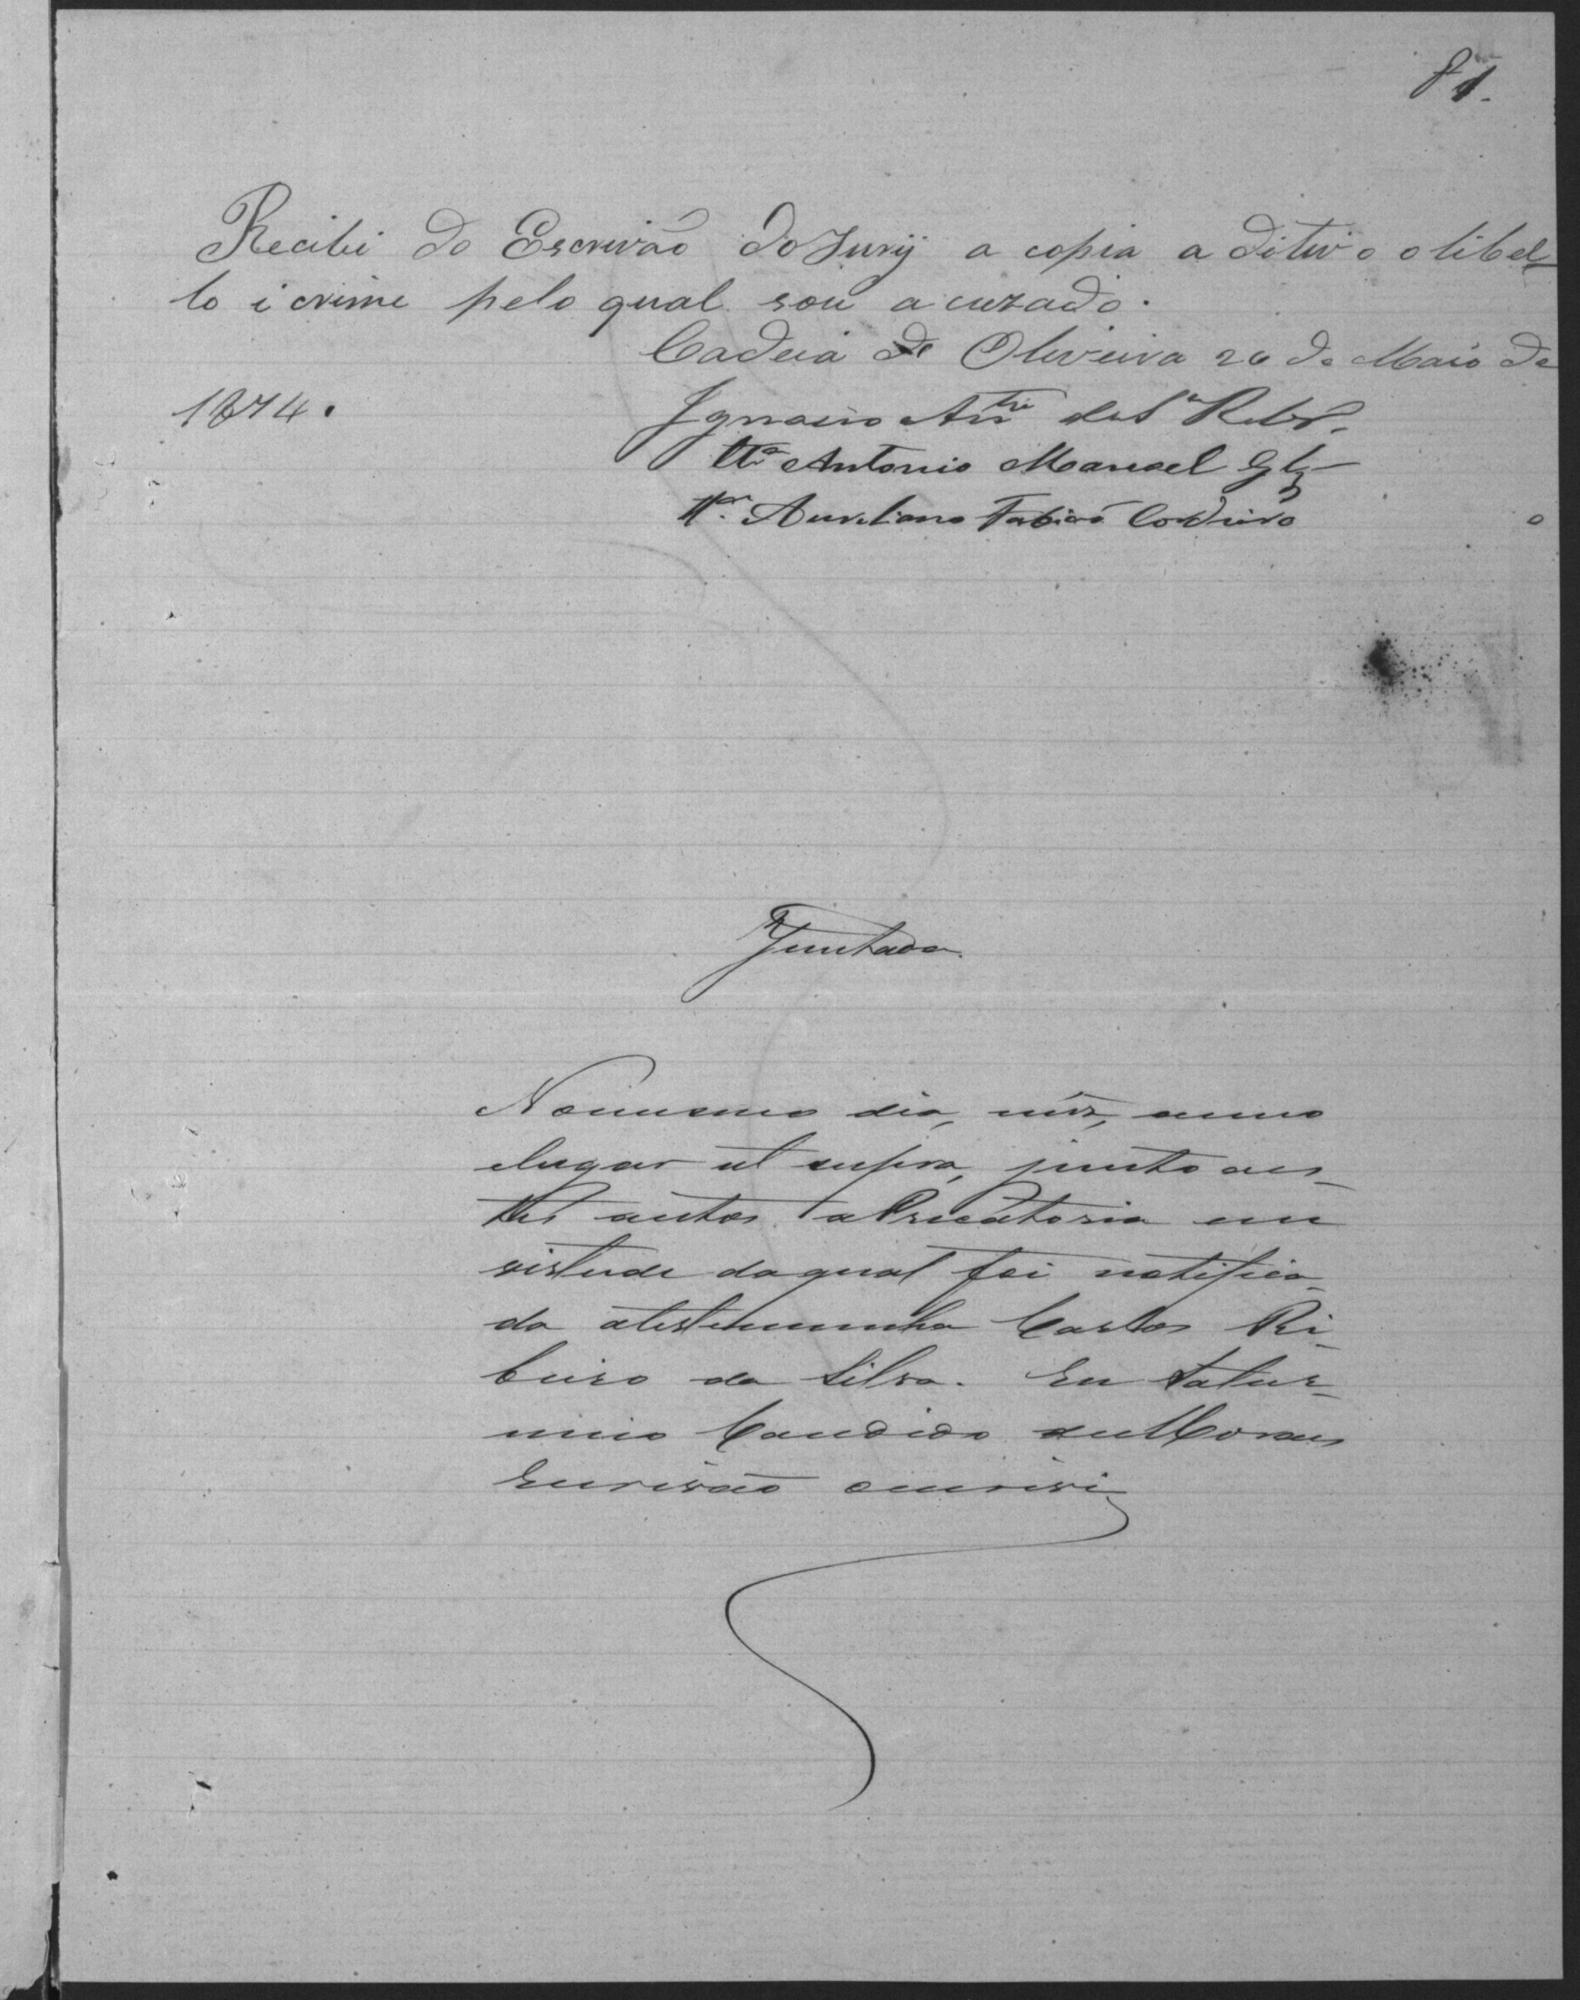 81.
Recibi do Escrivão do Jury a copia a ditivo o libel-
lo i crime pelo qual sou a cuzado.
Cadeia de Oliveira 26 de Maio de
1874.
Ignacio Anto de Sa Ribro.
Ta Antonio Manoel Glz
Ta. Aureliano Fabião Cordeiro
Juntada
No mesmo dia, mês, anno
e lugar ut supra, junto aes-
tes autos a Precatoria em
virtude da qual foi notifica-
da a testemunha Carlos Ri-
beiro da Silva. Eu Satur-
nino Candido de Moraes
Escrivão o escrivi